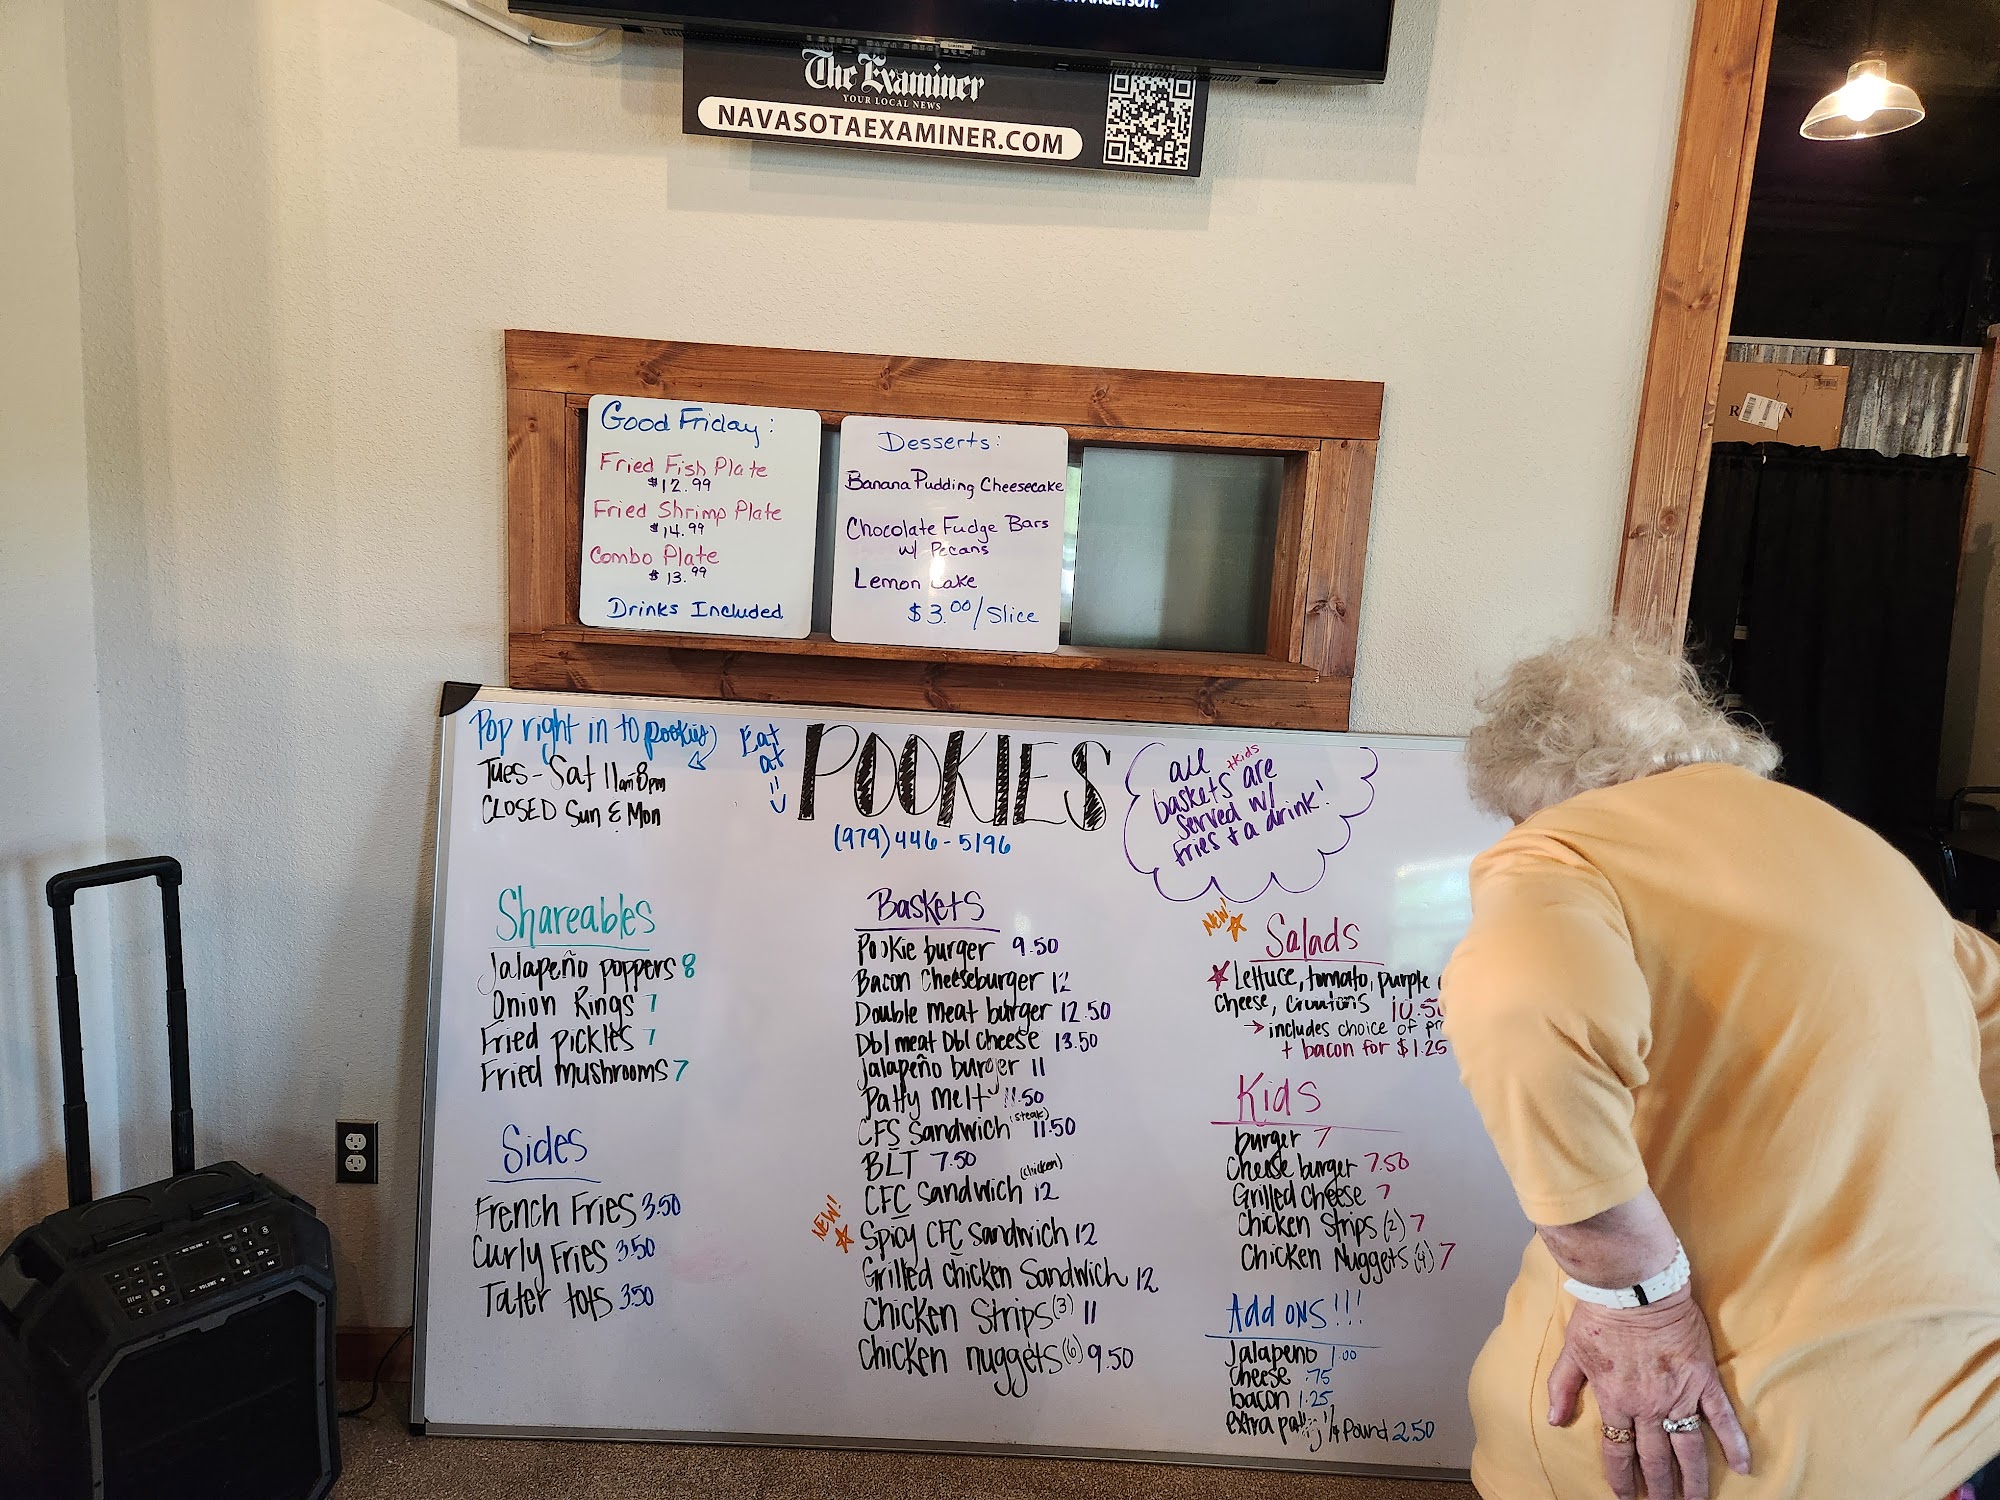 Anderson.
The Examiner
YOUR LOCAL NEWS
NAVASOTAEXAMINER.COM
Good Friday:
Fried Fish Plate
$12.99
Fried Shrimp Plate
$14.99
Combo Plate
$13.99
Drinks Included
Desserts:
Banana Pudding Cheesecake
Chocolate Fudge Bars
w/ Pecans
Lemon Cake
$3.00/Slice
Pop right in to pookies
Tues-Sat 11am-8pm
CLOSED Sun & Mon
Eat
at
POOKIES
(979)446-5196
all
baskets +Kids are
served w/
fries + a drink!
Shareables
Jalapeño poppers 8
Onion Rings 7
Fried pickles 7
Fried mushrooms 7
Sides
French Fries 3.50
Curly Fries 3.50
Tater tots 3.50
Baskets
Pookie burger 9.50
Bacon Cheeseburger 12
Double meat burger 12.50
Dbl meat Dbl cheese 13.50
Jalapeño burger 11
Patty melt 11.50
CFS Sandwich (steak) 11.50
BLT 7.50
CFC Sandwich (chicken) 12
NEW! Spicy CFC Sandwich 12
Grilled chicken Sandwich 12
Chicken Strips (3) 11
Chicken nuggets (6) 9.50
NEW!
Salads
Lettuce, tomato, purple
Cheese, croutons 10.50
includes choice of
+ bacon for $1.25
Kids
burger 7
Cheese burger 7.50
Grilled cheese 7
Chicken Strips (2) 7
Chicken Nuggets (4) 7
Add ons!!!
Jalapeno 1.00
Cheese .75
bacon 1.25
extra patty 1/4 Pound 2.50